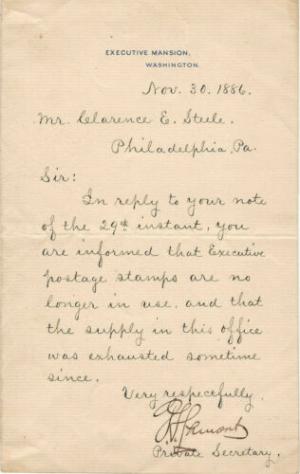 EXECUTIVE MANSION,
WASHINGTON.
Nov. 30. 1886.
Mr. Clarence E. Steele.
Philadelphia, Pa.
Sir:
In reply to your note
of the 29th instant, you
are informed that Executive
postage stamps are no
longer in use, and that
the supply in this office
was exhausted sometime
since.
Very respectfully.
Lamont
Private Secretary.